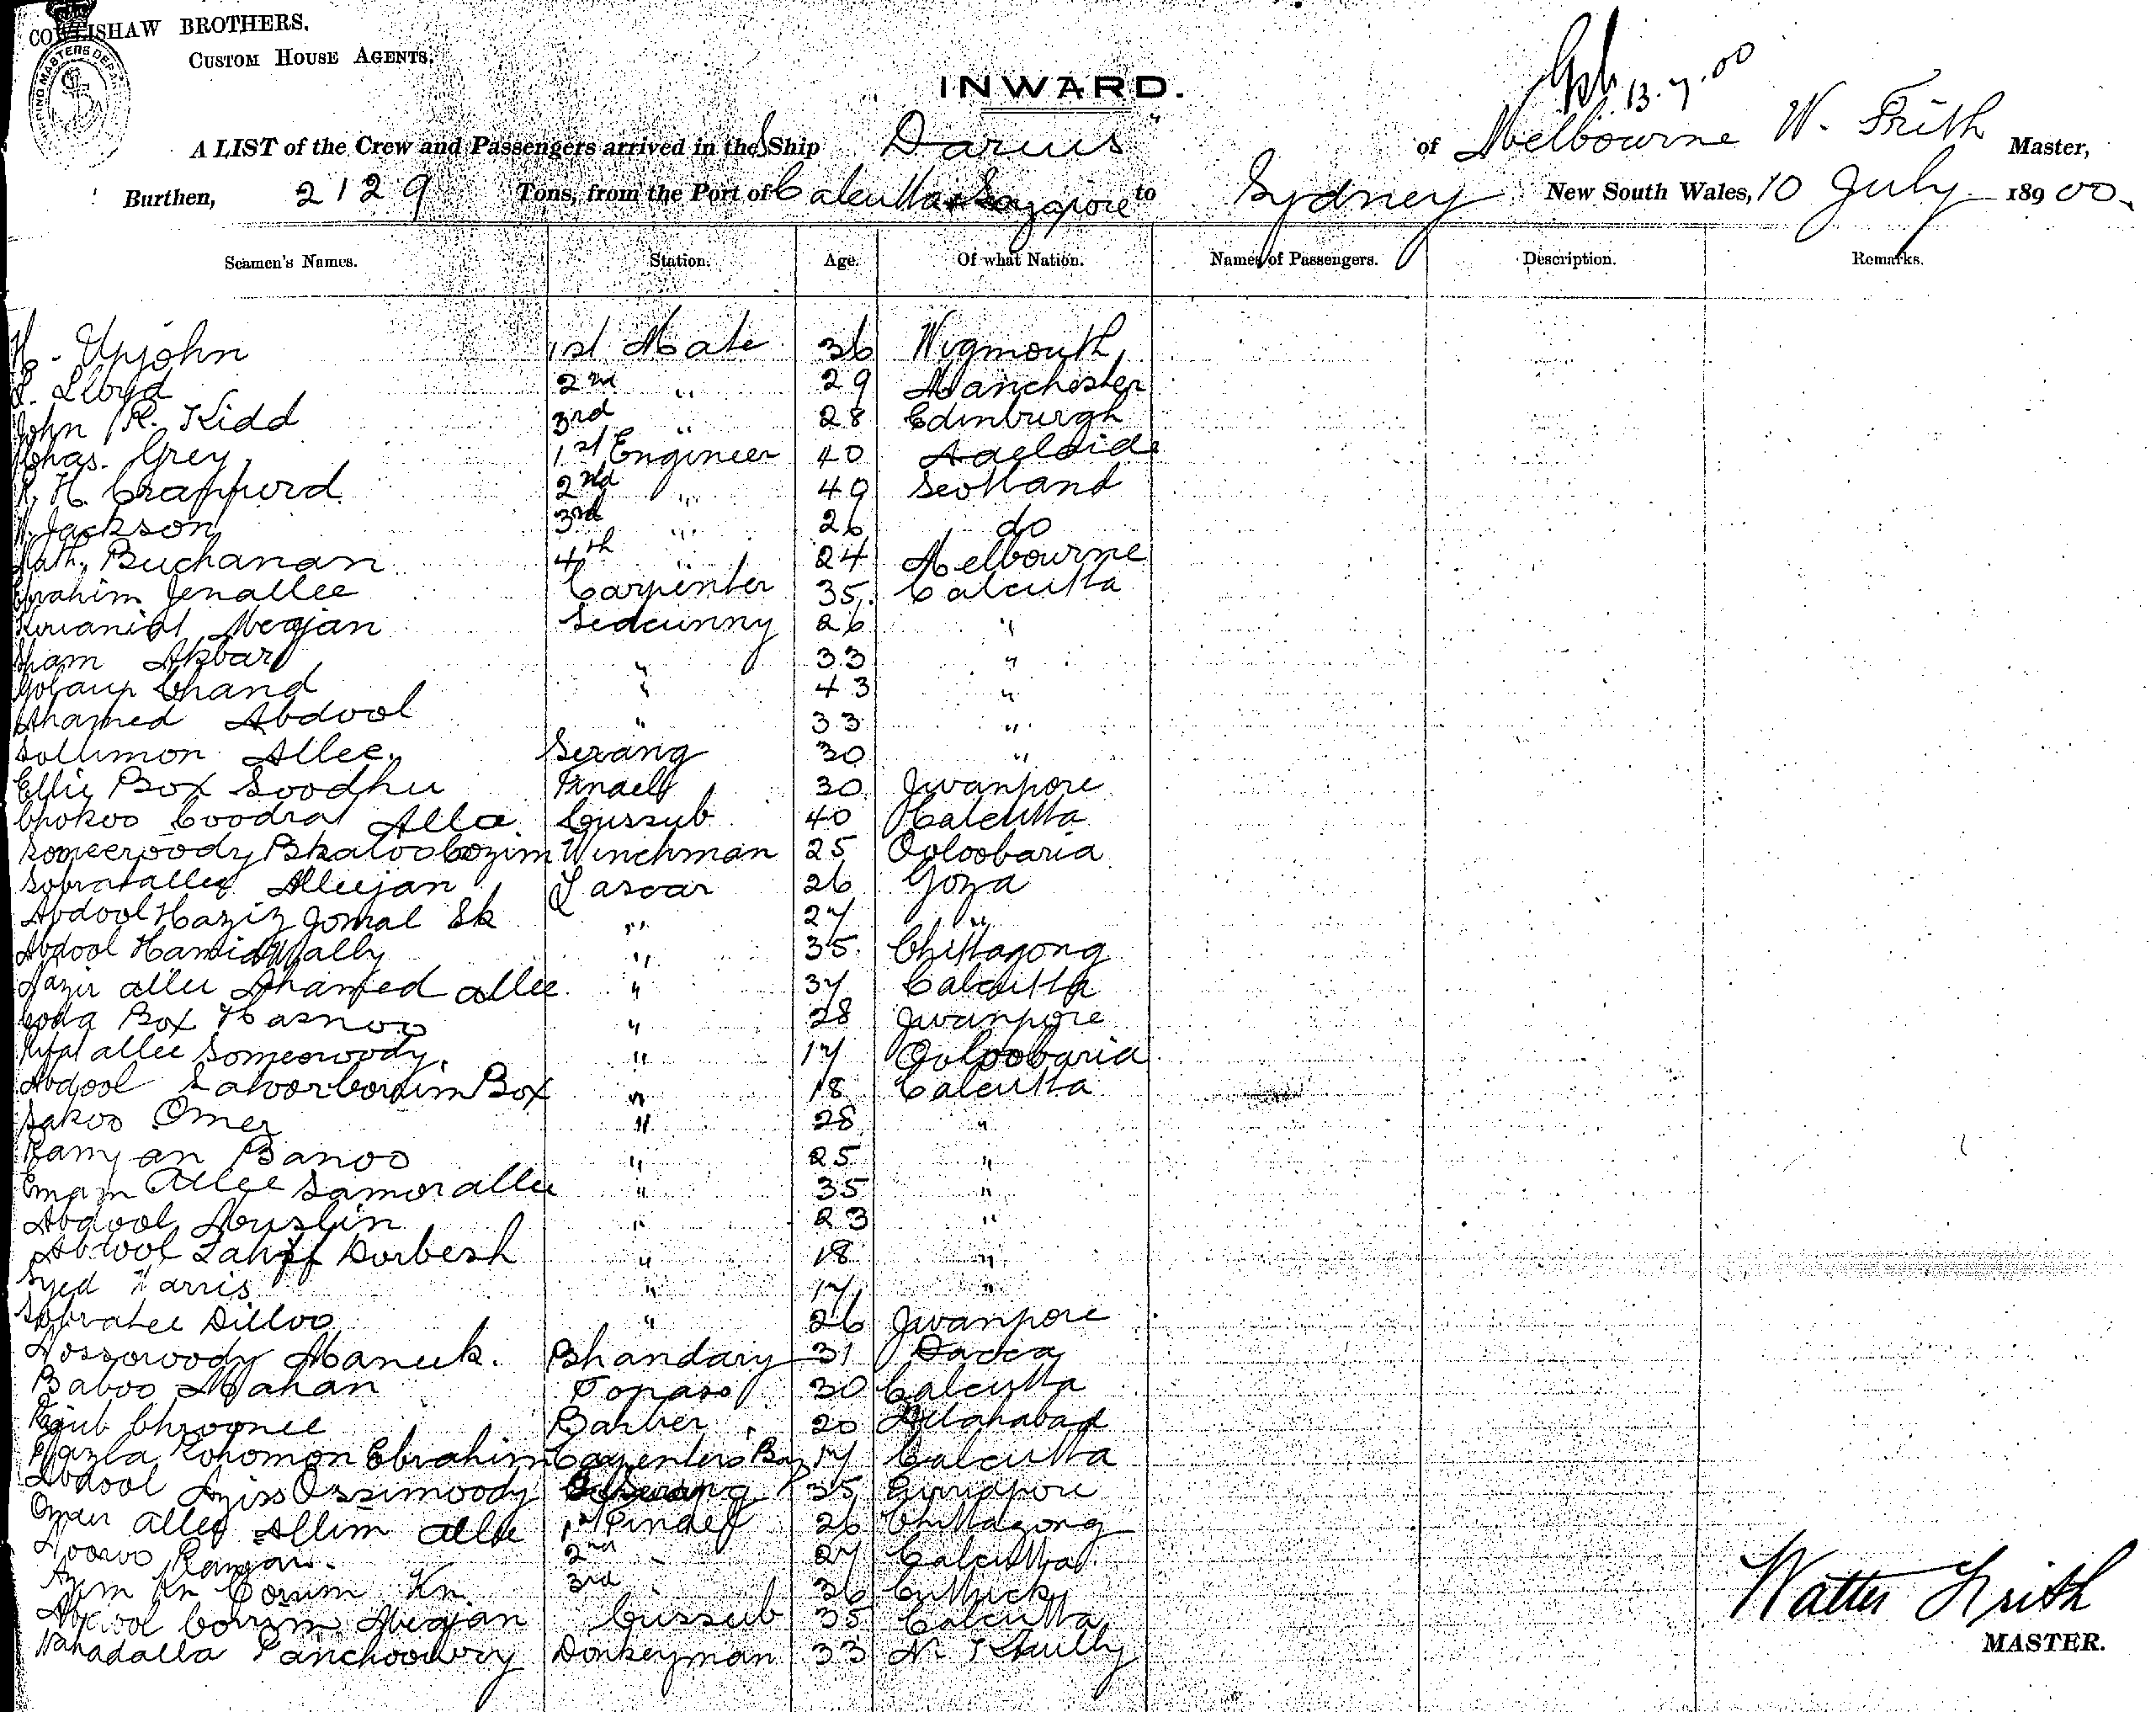 COWLISHAW BROTHERS.
CUSTOM HOUSE AGENTS.
INWARD.
13.7.00
A LIST of the Crew and Passengers arrived in the S Ship Darius" of Melbourne W. Frith Master,
Burthen, 2129 Tons, from the Port of Calcutta & Singapore to Sydney New South Wales, 10 July 18900.
Seamen's Names. Station. Age. Of what Nation. Names of Passengers. Description. Remarks.
H. Upjohn 1st Mate 36 Wigmouth
L. Lloyd 2nd " 29 Manchester
John R. Kidd 3rd " 28 Edinburgh
Chas. Grey 1st Engineer 40 Adelaide
R. H. Craffurd 2nd " 49 Scotland
Jackson 3rd " 26 do
Math. Buchanan 4th 24 Melbourne
Ebrahim Jenallee Carpenter 35 Calcutta
Meajan Seacunny 26 "
Sham Akbar " 33 "
Golaup Chand " 43 "
Ahamed Abdool " 33 "
Sollimon Allee Serang 30 "
Ellie Box Soodhu Tindell 30 Jwanpore
Chokoo Coodrat Alla Cussub 40 Calcutta
Someeroody Winchman 25 Ooloobaria
Sobratallee Alleejan Lascar 26 Goza
Abdool Haziz Jomal Sk " 27 "
Abdool Hamid Wally " 35 Chittagong
Nazir allee Ahamed allee " 37 Calcutta
Coda Box Hasnoo " 28 Jwanpore
allee Someeroody " 17 Ooloobaria
Abdool Box " 18 Calcutta
Sakoo Omer " 28 "
Ramjan Banoo " 25 "
Emam Allee Samorallee " 35 "
Abdool Muslin " 23 "
Abdool Latiff Dorbesh " 18 "
Syed Harris " 17 "
Sobratee Dilloo " 26 Jwanpore
Nossoroody Maneek. Bhandary 31 Dacca
Baboo Mahan Topass 30 Calcutta
Rajub Chroonee Barber 20 Allahabad
Fazla Rohomon Ebrahim Carpenters Boy 17 Calcutta
Abdool Aziss Ossimoody Serang 35 Furridpore
Omer allee Allim allee 1st Tindel 26 Chittagong
Nooroo Ramjan 2nd " 27 Calcutta
Azim Kn Cossim Kn 3rd " 36 Cuttuck
Abdool Corrim Meajan Cussub 35 Calcutta
Panchoowry Donkeyman 33 N.
Walter Frith
MASTER.